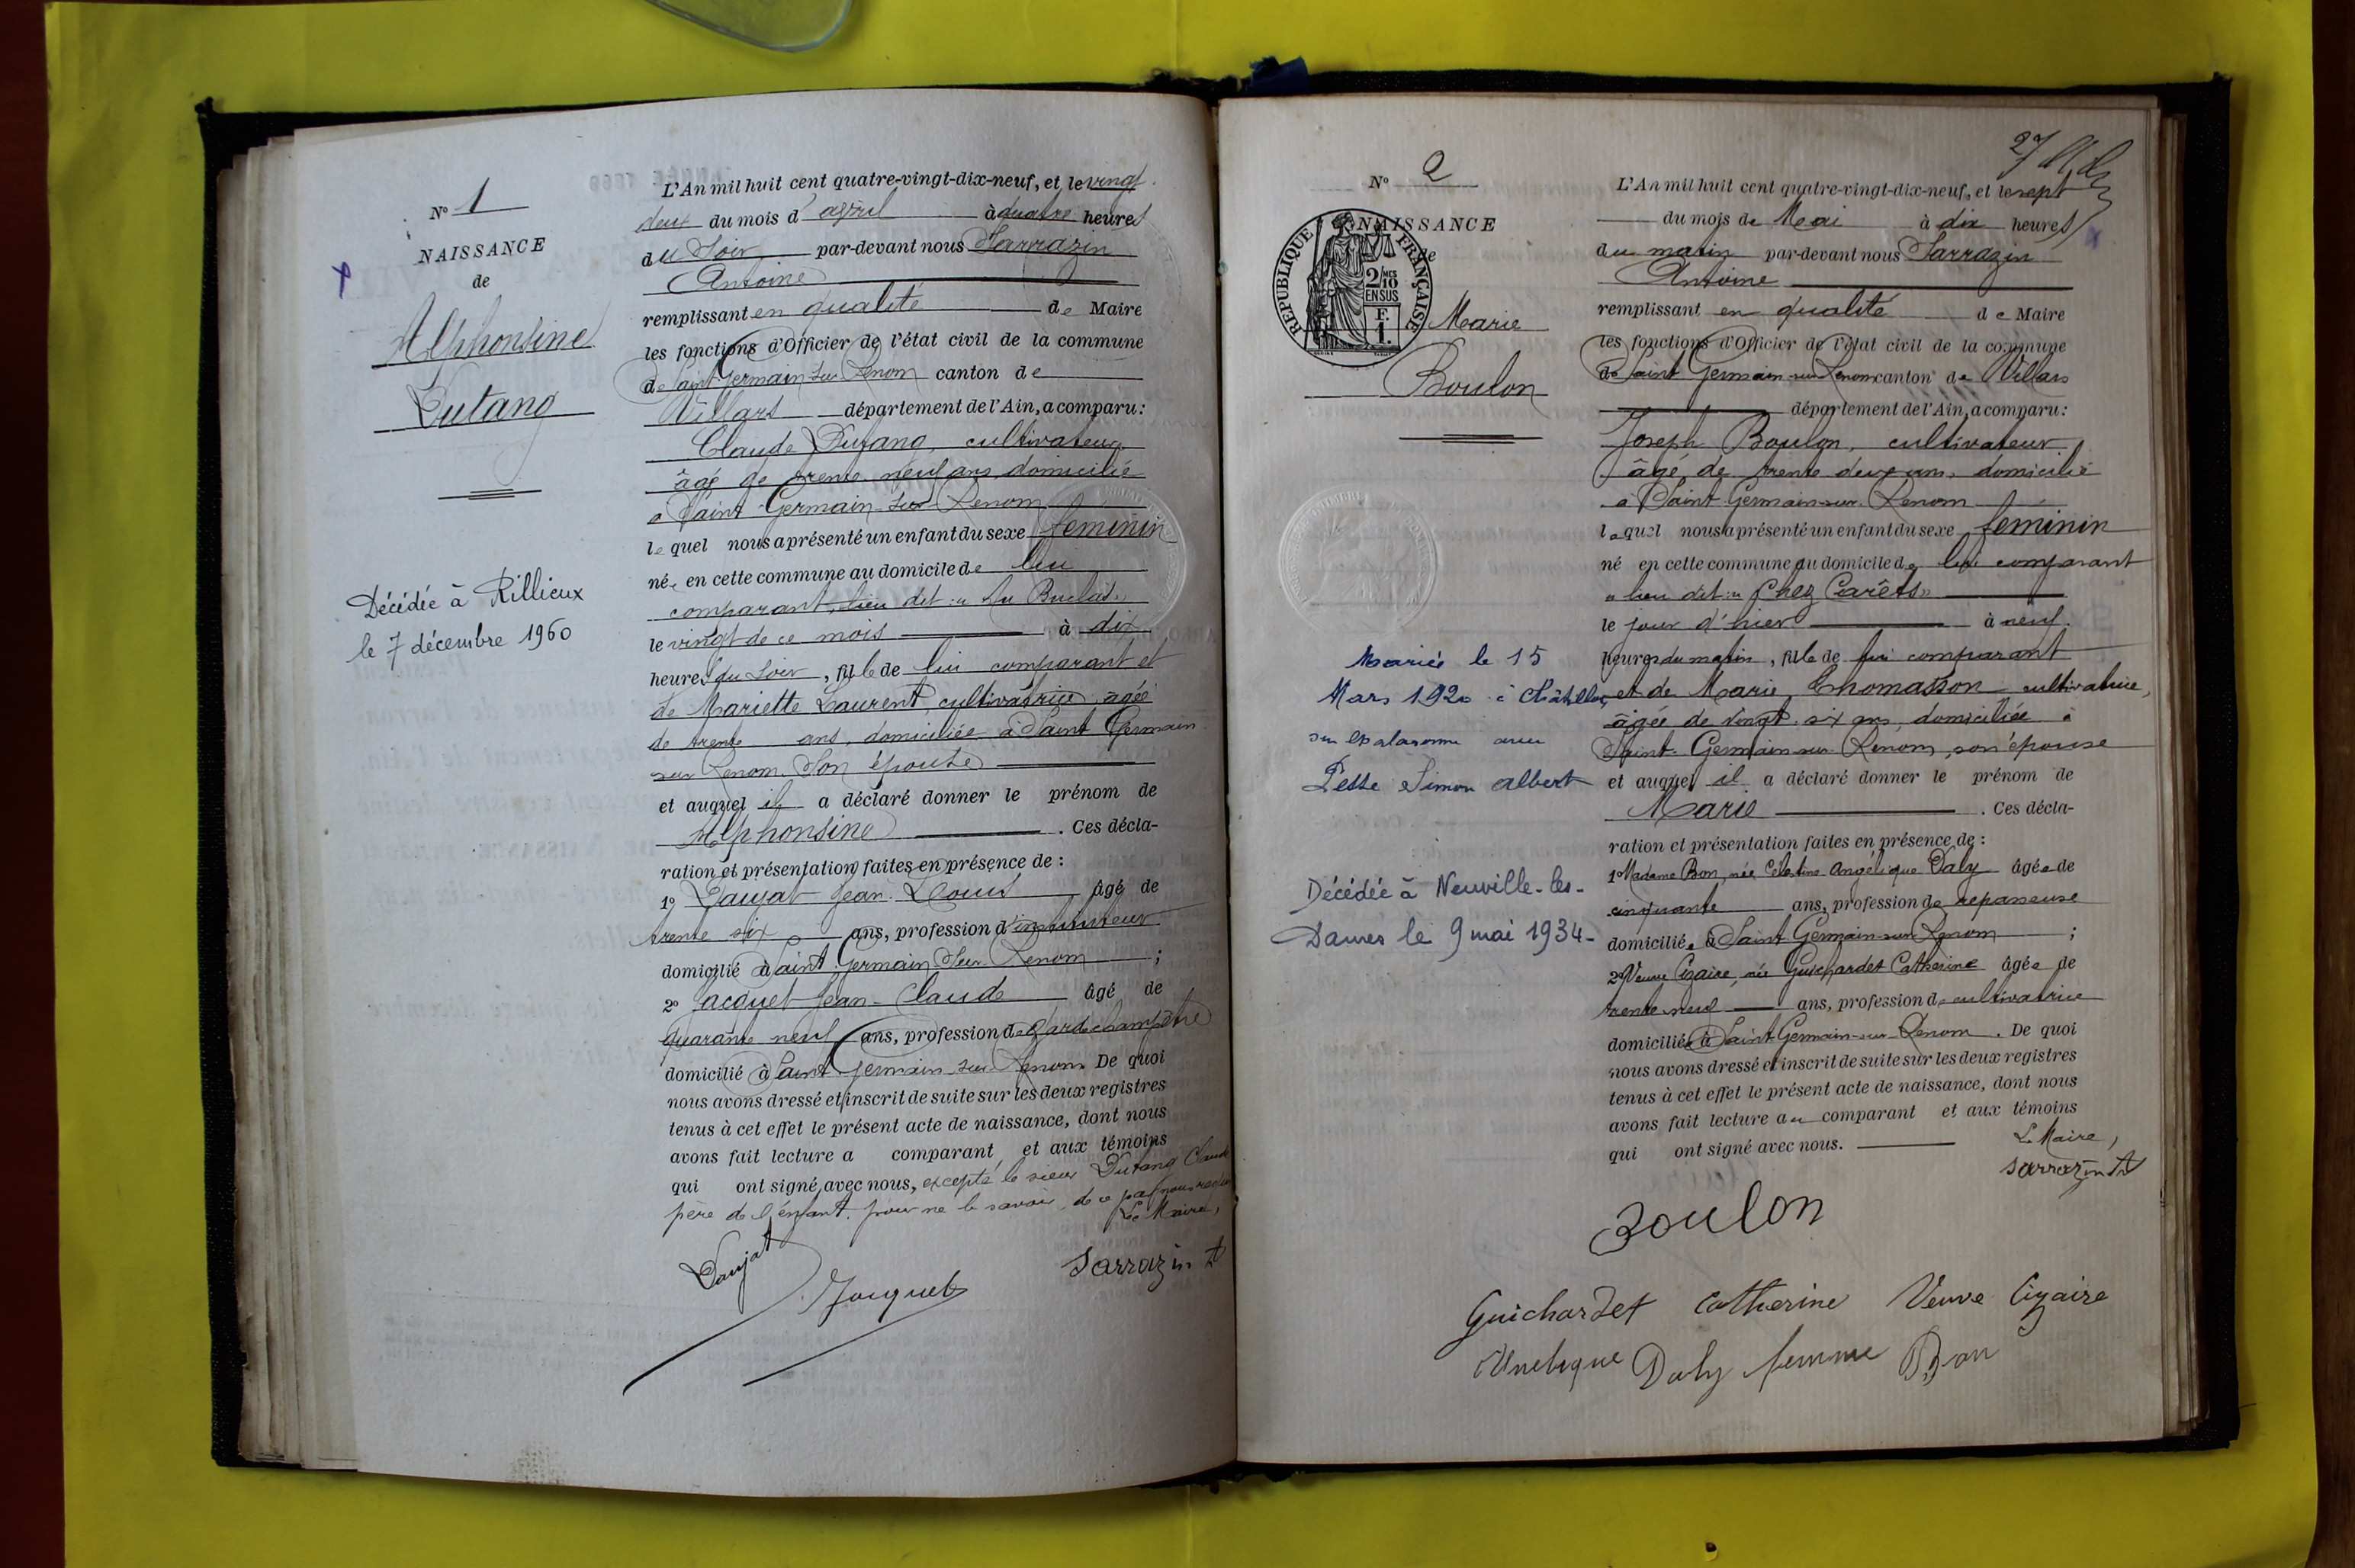 N° 1
NAISSANCE
de
Alphonsine
Dutang
Décédée à Rillieux
le 7 décembre 1960
L'An mil huit cent quatre-vingt-dix-neuf, et le vingt
deux du mois d'avril à quatre heures
du soir par-devant nous Sarrazin
Antoine
remplissant en qualité de Maire
les fonctions d'Officier de l'état civil de la commune
de Saint Germain sur Renom canton de
Villars département de l'Ain, a comparu :
Claude Dutang, cultivateur,
âgé de trente neuf ans, domicilié
à Saint Germain sur Renom
lequel nous a présenté un enfant du sexe féminin
née en cette commune au domicile de lui
comparant, lieu dit : « Au
le vingt de ce mois à dix
heures du soir, fille de lui comparant et
de Mariette Laurent, cultivatrice, âgée
de trente ans, domiciliée à Saint Germain
sur Renom. Son épouse
et auquel il a déclaré donner le prénom de
Alphonsine. Ces décla-
ration et présentation faites en présence de :
1° Daujat Jean-Louis âgé de
trente six ans, profession d'instituteur
domicilié à Saint Germain sur Renom ;
2° Jacquet Jean-Claude âgé de
quarante neuf ans, profession de garde champêtre
domicilié à Saint Germain sur Renom De quoi
nous avons dressé et inscrit de suite sur les deux registres
tenus à cet effet le présent acte de naissance, dont nous
avons fait lecture a comparant et aux témoins
qui ont signé avec nous, excepté le sieur Dutang Claude
père de l'enfant, pour ne le savoir, de ce par nous requis
Le Maire,
Daujat
Jacquet
Sarrazin At
27
N° 2
NAISSANCE
de
RÉPUBLIQUE FRANÇAISE
2/10 MES
EN SUS
F.
1.
Marie
Boulon
Mariée le 15
Mars 1920 à Châtillon
sur Chalaronne avec
Pesse Simon Albert
Décédée à Neuville-les-
Dames le 9 mai 1934-
L'An mil huit cent quatre-vingt-dix-neuf, et le sept
du mois de Mai à dix heures
du matin par-devant nous Sarrazin
Antoine
remplissant en qualité de Maire
les fonctions d'Officier de l'état civil de la commune
de Saint Germain-sur-Renom canton de Villars
département de l'Ain, a comparu :
Joseph Boulon, cultivateur,
âgé de trente deux ans, domicilié
à Saint-Germain-sur-Renom
lequel nous a présenté un enfant du sexe féminin
né en cette commune au domicile de lui comparant
« lieu dit : « Chez Carêts »
le jour d'hier à neuf
heures du matin, fille de lui comparant
et de Marie Thomasson cultivatrice,
âgée de vingt-six ans, domiciliée à
Saint-Germain-sur-Renom, son épouse
et auquel il a déclaré donner le prénom de
Marie. Ces décla-
ration et présentation faites en présence de :
1° Madame Bon, née Célestine Angélique Daly âgée de
cinquante ans, profession de repasseuse
domiciliée à Saint-Germain-sur-Renom ;
2° Veuve Cizaire, née Guichardet Catherine âgée de
trente neuf ans, profession de cultivatrice
domiciliée à Saint-Germain-sur-Renom. De quoi
nous avons dressé et inscrit de suite sur les deux registres
tenus à cet effet le présent acte de naissance, dont nous
avons fait lecture au comparant et aux témoins
qui ont signé avec nous.
Le Maire,
Sarrazin At
Boulon
Guichardet Catherine Veuve Cizaire
Daly femme Bon